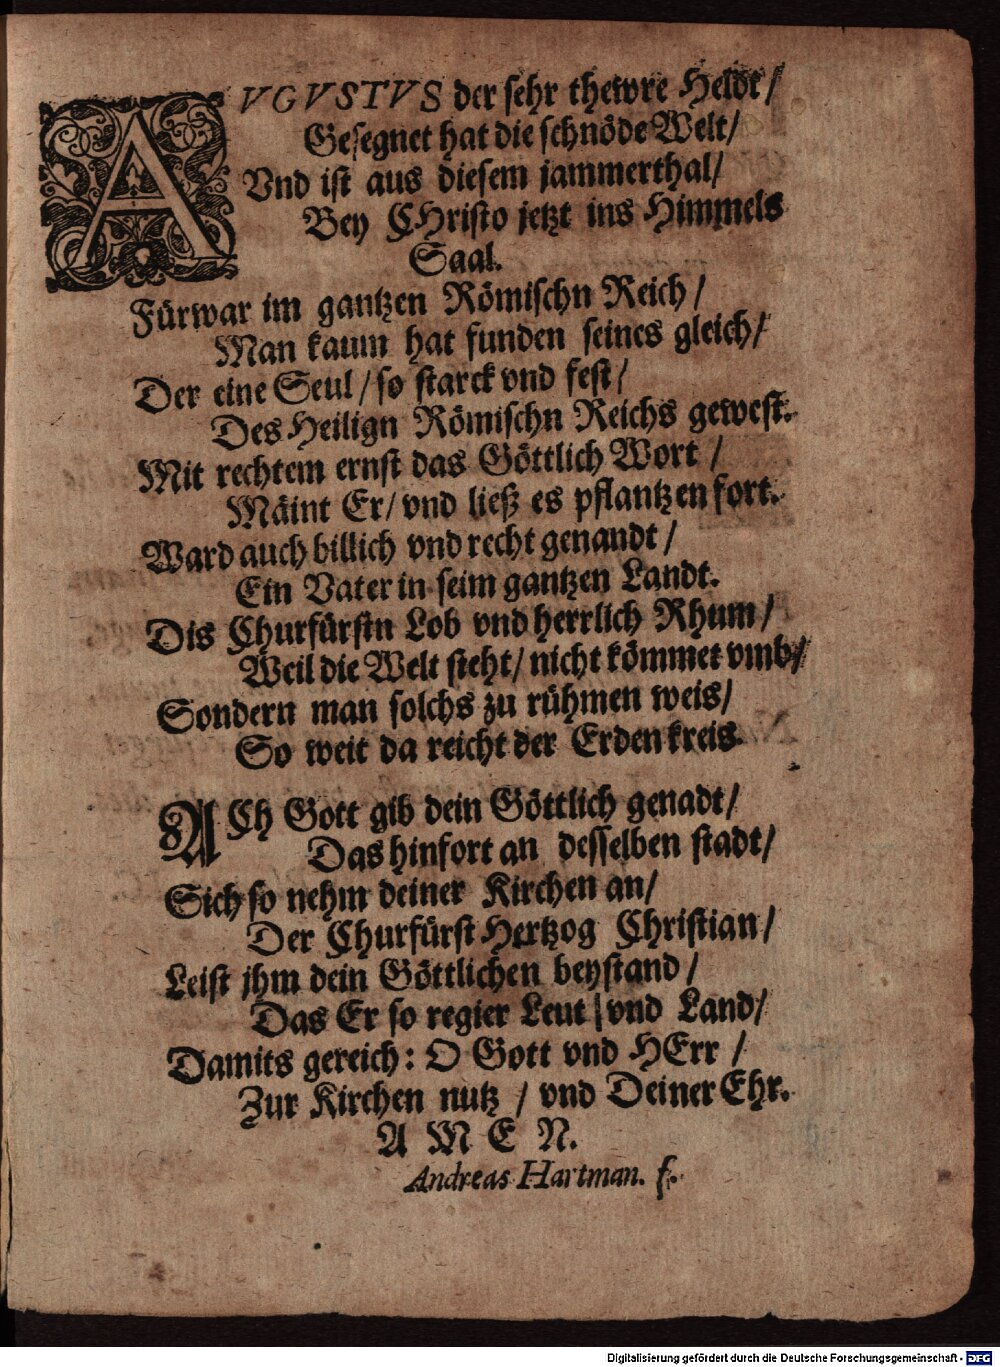 AVGVSTVS der sehr thewre Heldt/
Gesegnet hat die schnöde Welt/
Vnd ist aus diesem jammerthal/
Bey CHristo jetzt ins Himmels
Saal.
Fürwar im gantzen Römischn Reich/
Man kaum hat funden seines gleich/
Der eine Seul/so starck vnd fest/
Des Heilign Römischn Reichs gewest.
Mit rechtem ernst das Göttlich Wort /
Mäint Er/vnd ließ es pflantzen fort.
Ward auch billich vnd recht genandt/
Ein Vater in seim gantzen Landt.
Dis Churfürstn Lob vnd herrlich Rhum/
Weil die Welt steht/nicht kömmet vmb/
Sondern man solchs zu rühmen weis/
So weit da reicht der Erden kreis.
ACh Gott gib dein Göttlich genadt/
Das hinfort an desselben stadt/
Sich so nehm deiner Kirchen an/
Der Churfürst Hertzog Christian/
Leist jhm dein Göttlichen beystand/
Das Er so regier Leut/vnd Land/
Damits gereich: O Gott vnd HErr /
Zur Kirchen nutz / vnd Deiner Ehr.
A M E N.
Andreas Hartman. f.
Digitalisierung gefördert durch die Deutsche Forschungsgemeinschaft - DFG